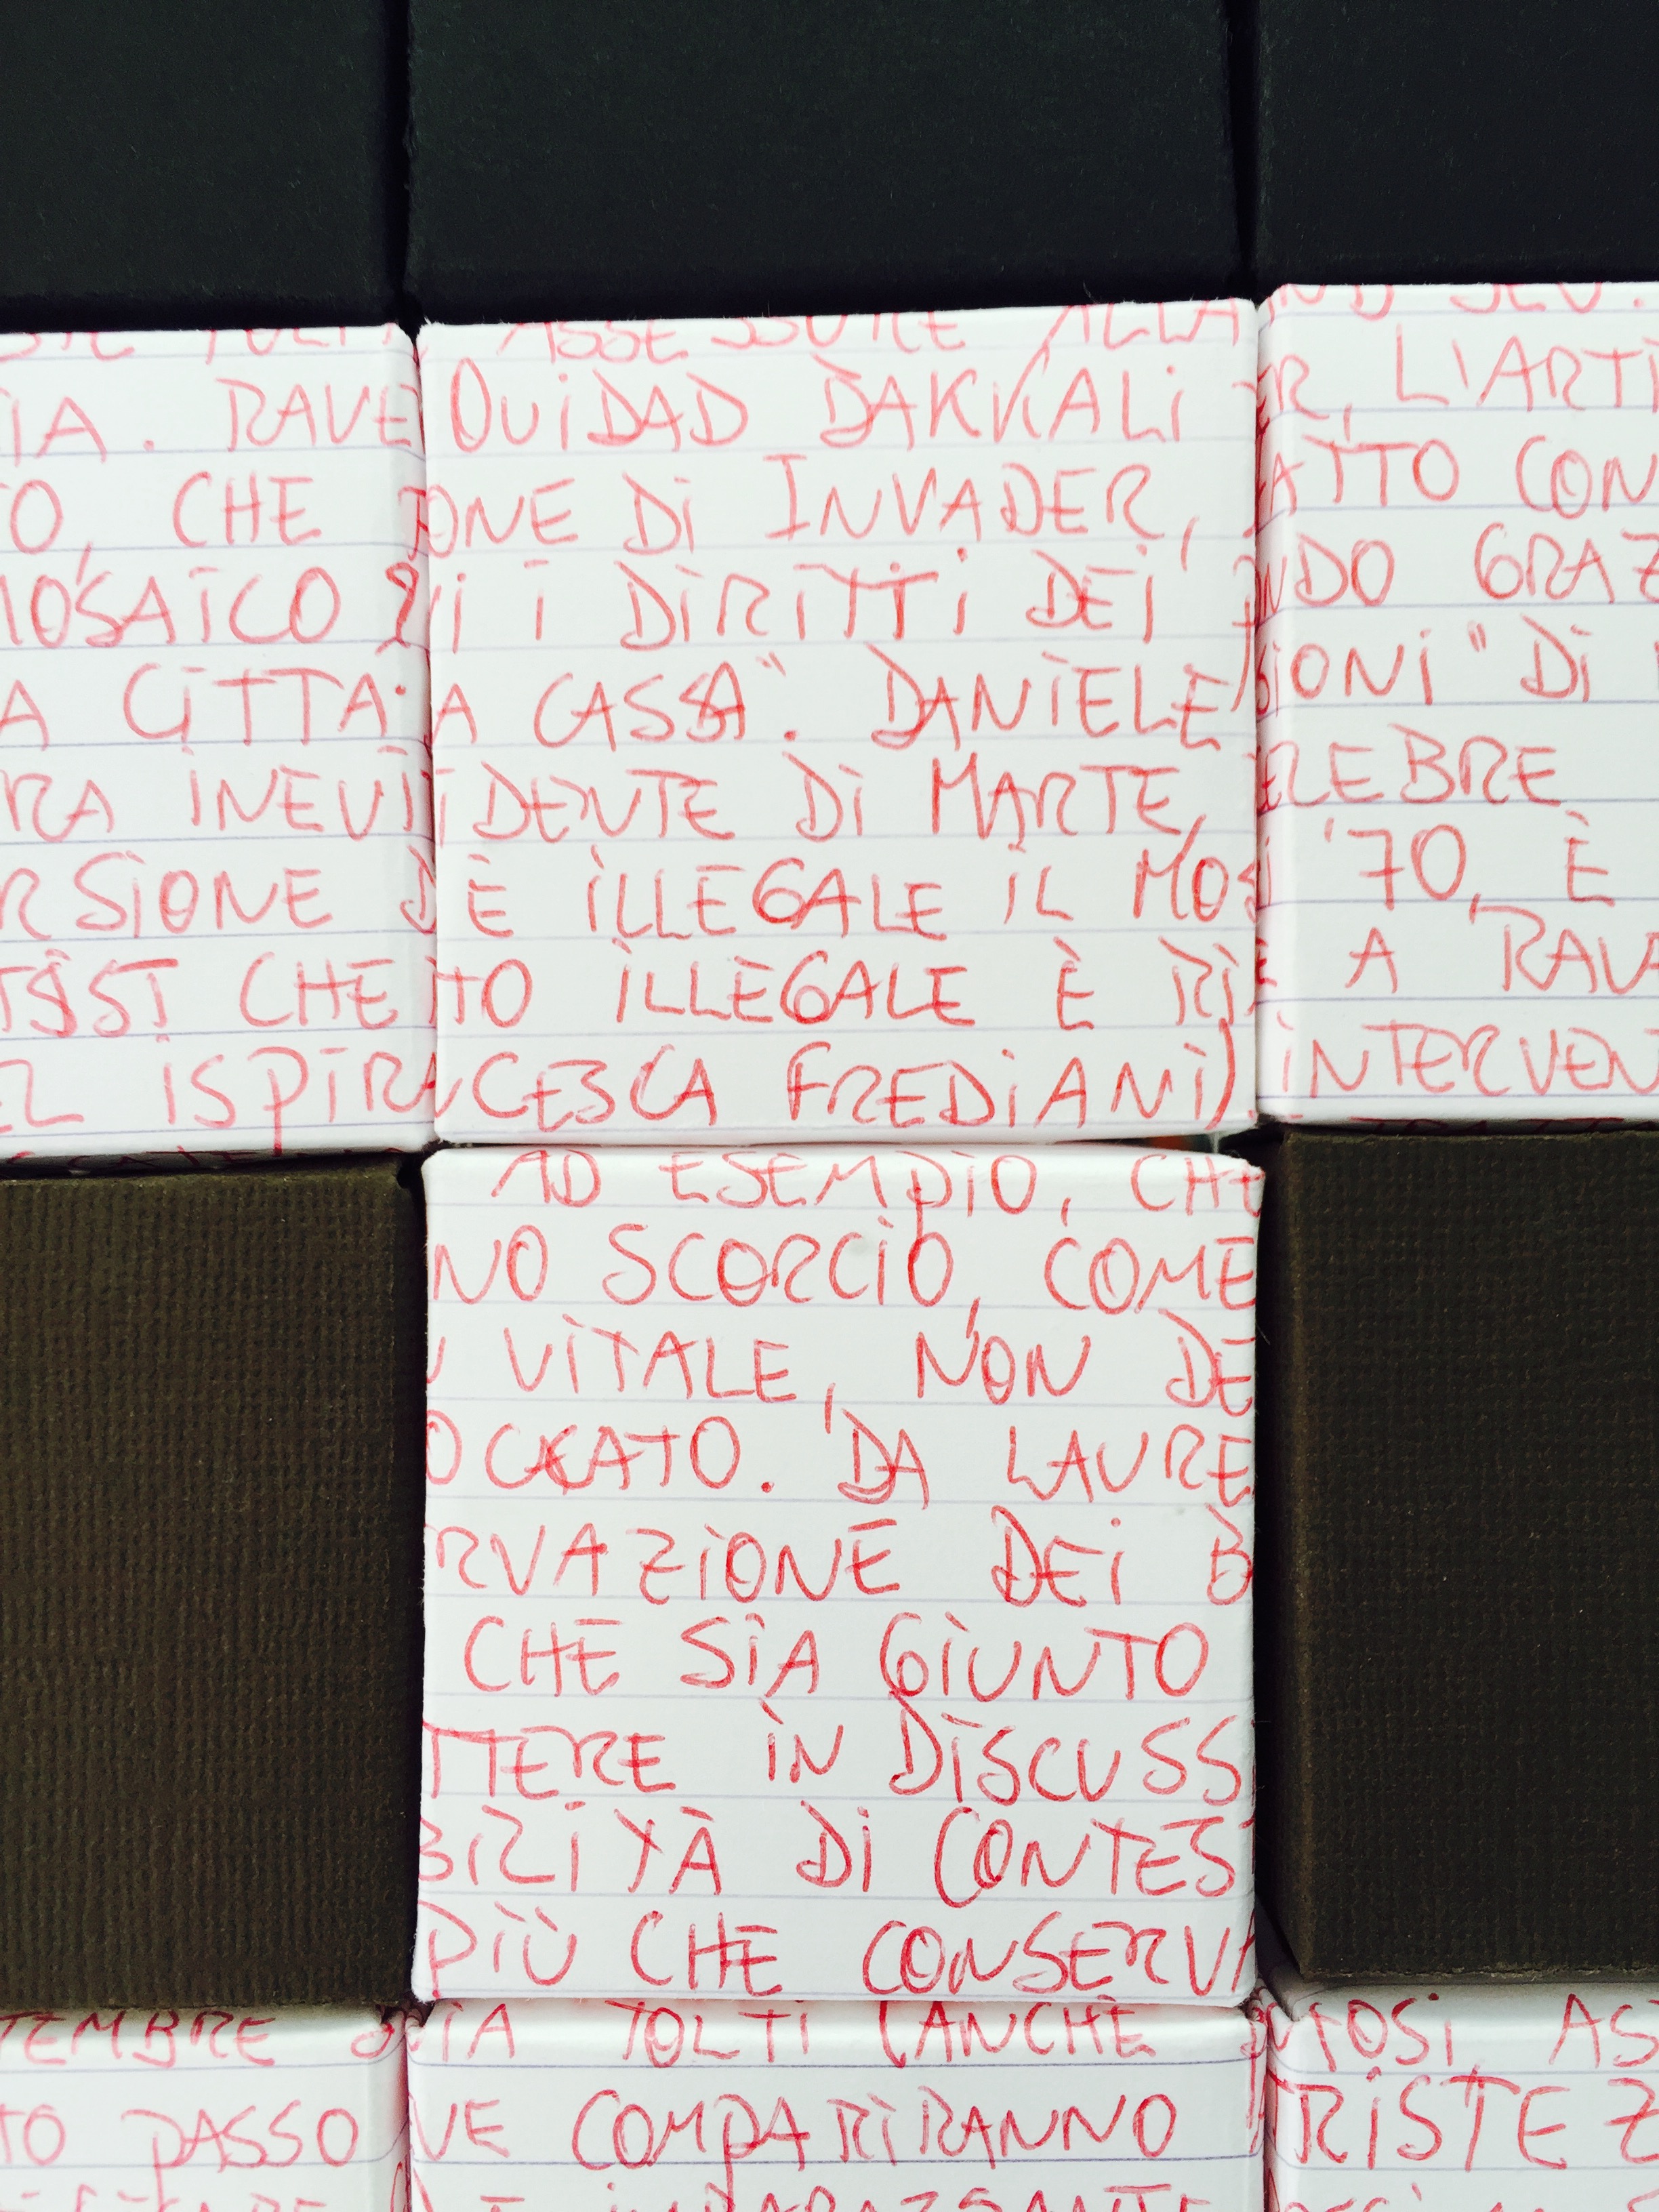 ASSESSORE ALLA
OUIDAD BAKKALI
ONE DI INVADER,
I I DIRITTI DEI
A CASSA". DANIELE
IDENTE DI MARTE,
È ILLEGALE IL MOS
TO ILLEGALE È RI
NCESCA FREDIANI)
IA. RAVE
O, CHE
MOSAICO
A CITTÀ
RA INEVI
RSIONE D
CHE
ISPIRA
R, L'ARTI
ATTO CON
NDO GRAZ
SIONI" DI
LEBRE
'70, È
A RAVA
INTERVEN
AD ESEMPIO, CHE
NO SCORCIO, COME
VITALE, NON DE
OCCATO. DA LAURE
RVAZIONE DEI B
CHE SIA GIUNTO
TTERE IN DISCUSS
BILITÀ DI CONTEST
PIÙ CHE CONSERVA
TEMBRE
TO PASSO
IA TOLTI (ANCHE
VE COMPARIRANNO
IMBARAZZANTE
OSI, AS
TRISTEZ